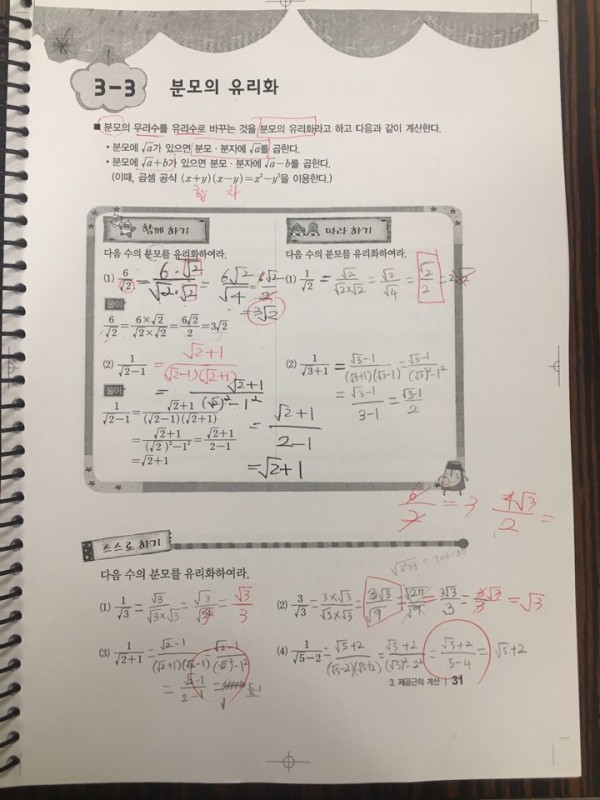 3-3 분모의 유리화
■ 분모의 무리수를 유리수로 바꾸는 것을 분모의 유리화라고 하고 다음과 같이 계산한다.
• 분모에 √a가 있으면 분모·분자에 √a를 곱한다.
• 분모에 √a+b가 있으면 분모·분자에 √a-b를 곱한다.
(이때, 곱셈 공식 (x+y)(x-y)=x²-y²을 이용한다.)
합 차
함께 하기
다음 수의 분모를 유리화하여라.
(1) 6/√2 = 6·√2/√2·√2 = 6√2/√4 = 6√2/2
=3√2
풀이
6/√2=6×√2/√2×√2=6√2/2=3√2
(2) 1/√2-1 = √2+1/(√2-1)(√2+1)
= √2+1/(√2)²-1²
= √2+1/2-1
=√2+1
풀이
1/√2-1=√2+1/(√2-1)(√2+1)
=√2+1/(√2)²-1²=√2+1/2-1
=√2+1
따라 하기
다음 수의 분모를 유리화하여라.
(1) 1/√2 = √2/√2×√2 = √2/√4 = √2/2
(2) 1/√3+1 = √3-1/(√3+1)(√3-1) = √3-1/(√3)²-1²
= √3-1/3-1 = √3-1/2
6/2 = 3 4√3/2 =
스스로 하기
다음 수의 분모를 유리화하여라.
(1) 1/√3 = √3/√3×√3 = √3/3
(2) 3/√3 = 3×√3/√3×√3 = 3√3/√9 = √27/√9 = 3√3/3 = 3√3/3 = √3
(3) 1/√2+1 = √2-1/(√2+1)(√2-1) = √2-1/(√2)²-1²
= √2-1/2-1 = √2-1
(4) 1/√5-2 = √5+2/(√5-2)(√5+2) = √5+2/(√5)²-2² = √5+2/5-4 = √5+2
3. 제곱근의 계산 31